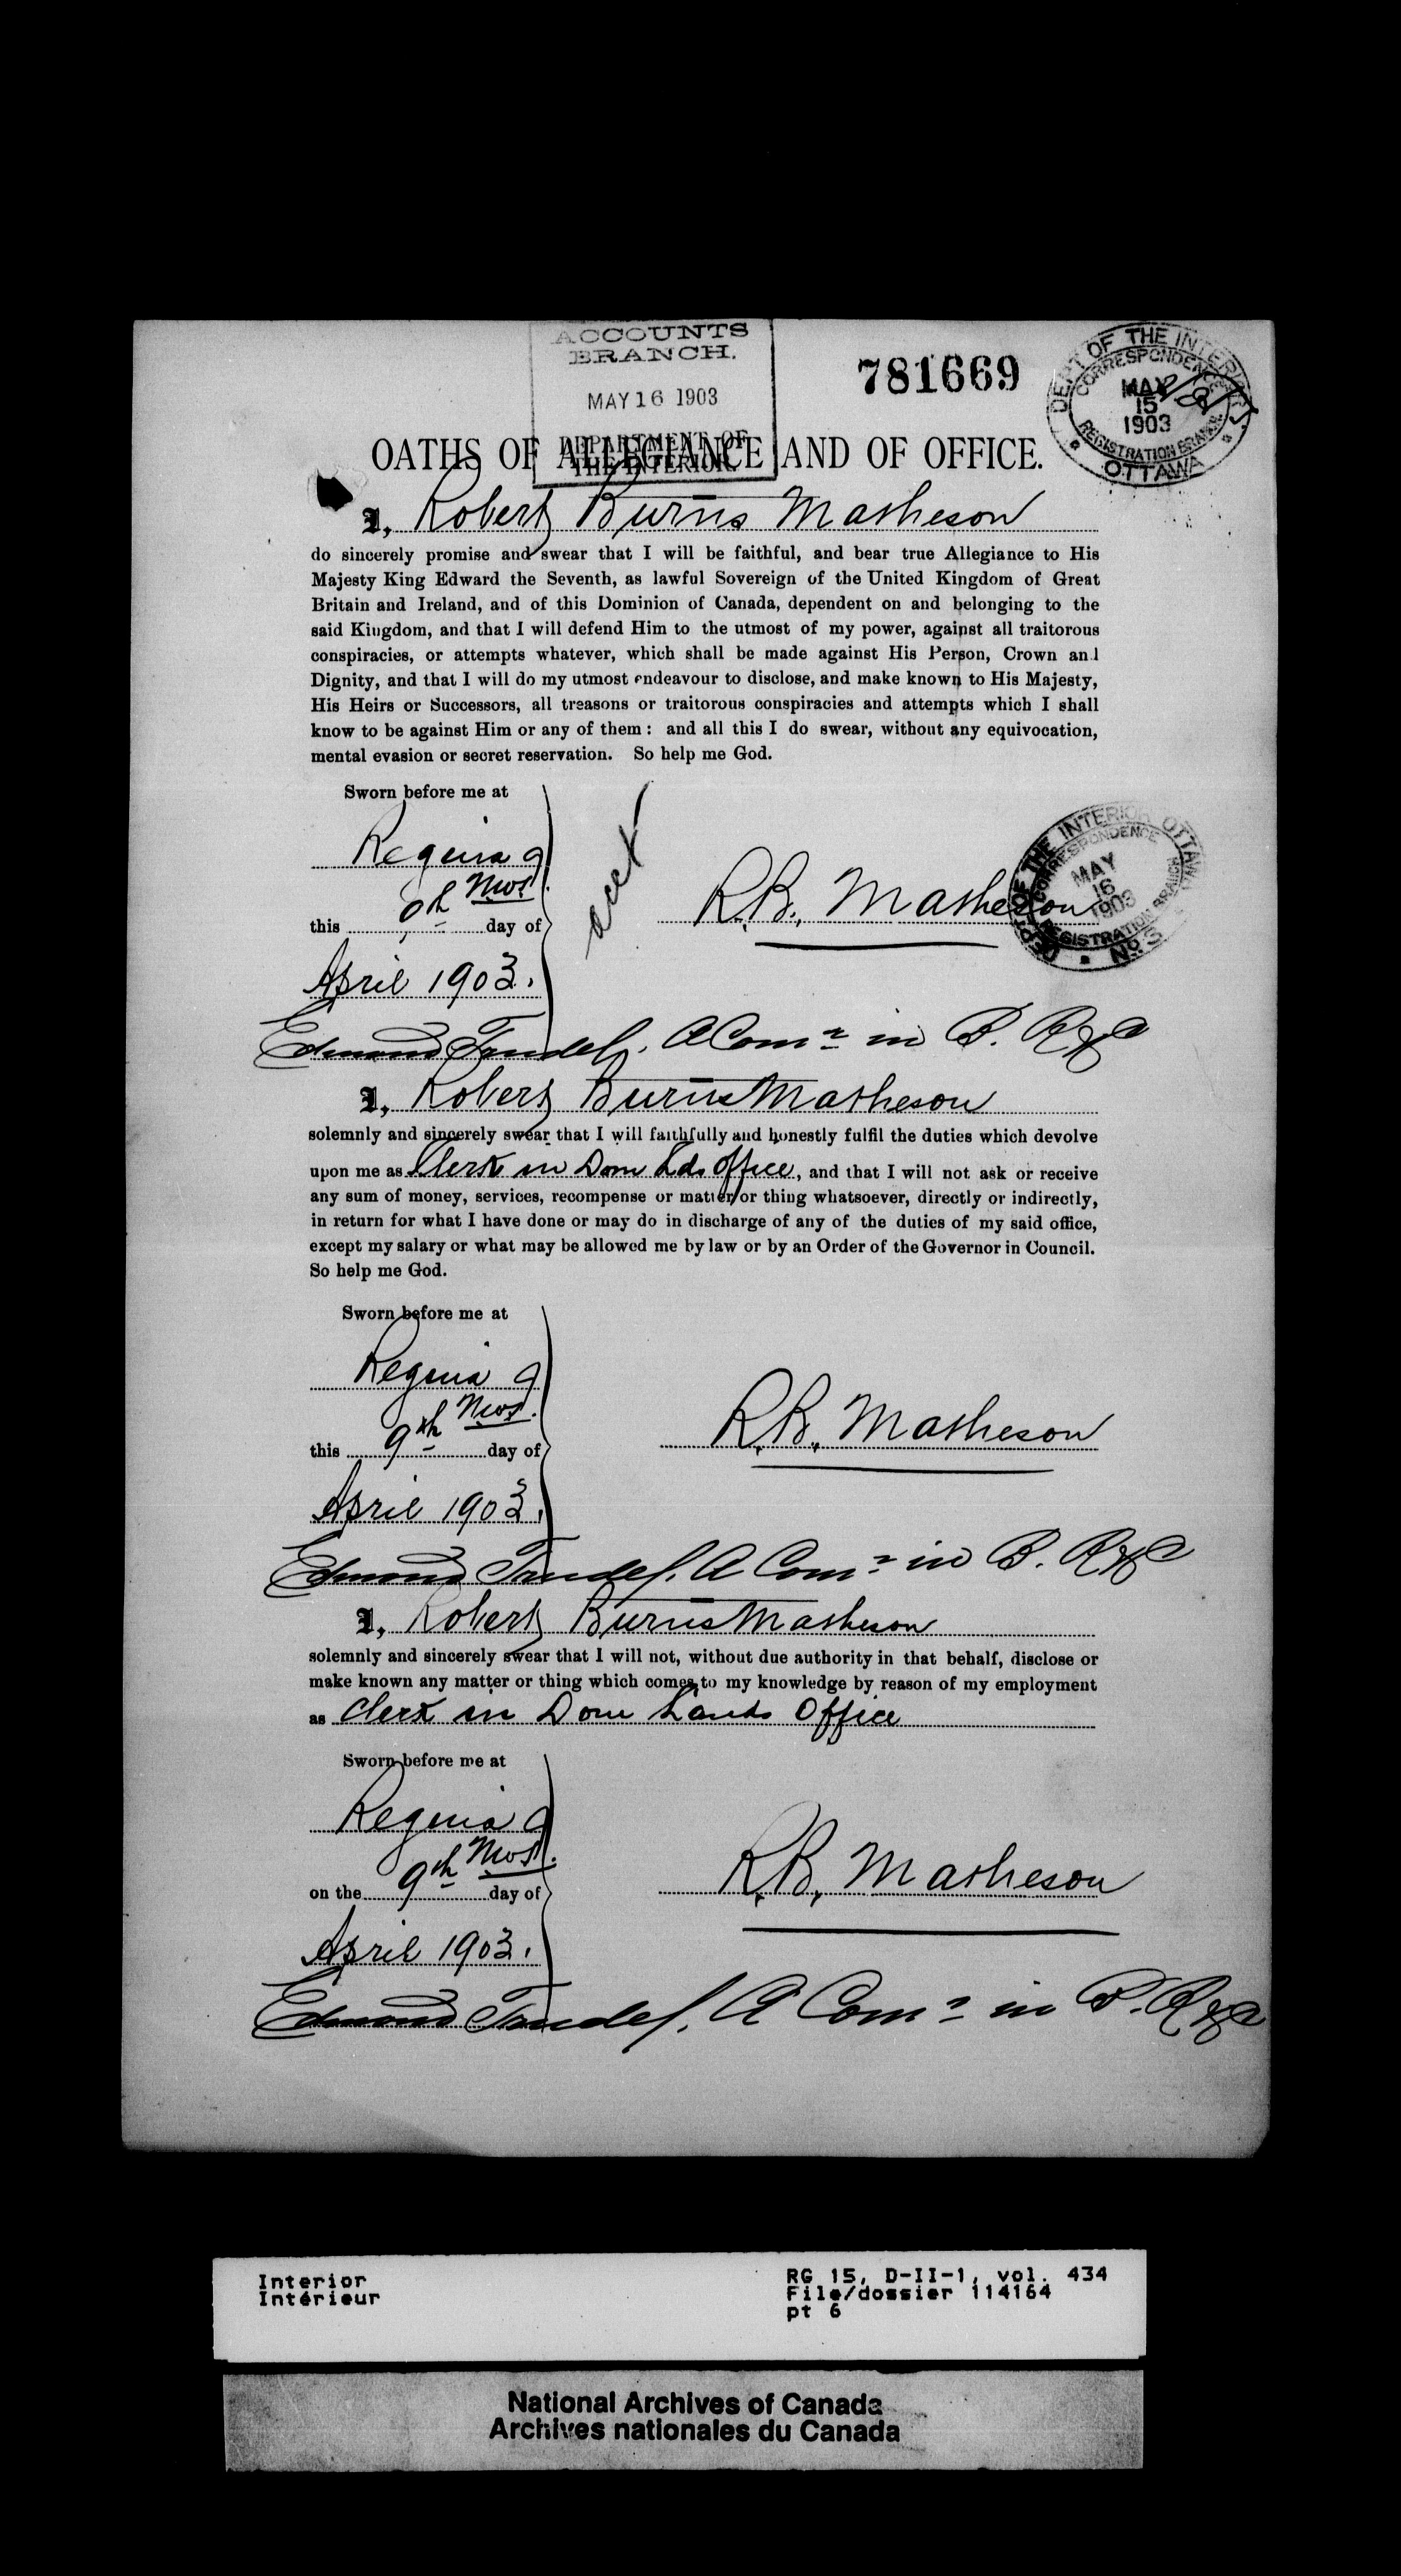 ACCOUNTS
BRANCH.
MAY 16 1903
DEPARTMENT OF
THE INTERIOR.
781669
DEPT OF THE INTERIOR.
CORRESPONDENCE
MAY
15
1903
REGISTRATION BRANCH.
OTTAWA
OATHS OF ALLEGIANCE AND OF OFFICE.
I, Robert Burns Matheson
do sincerely promise and swear that I will be faithful, and bear true Allegiance to His
Majesty King Edward the Seventh, as lawful Sovereign of the United Kingdom of Great
Britain and Ireland, and of this Dominion of Canada, dependent on and belonging to the
said Kingdom, and that I will defend Him to the utmost of my power, against all traitorous
conspiracies, or attempts whatever, which shall be made against His Person, Crown and
Dignity, and that I will do my utmost endeavour to disclose, and make known to His Majesty,
His Heirs or Successors, all treasons or traitorous conspiracies and attempts which I shall
know to be against Him or any of them : and all this I do swear, without any equivocation,
mental evasion or secret reservation. So help me God.
Sworn before me at
Regina
Nwt.
this 9th day of
April 1903.
R.B. Matheson
DEPT OF THE INTERIOR OTTAWA
CORRESPONDENCE
MAY
16
1903
REGISTRATION BRANCH
No. 3
Edmond Trudel. A Comr in B. R &c
I, Robert Burns Matheson
solemnly and sincerely swear that I will faithfully and honestly fulfil the duties which devolve
upon me as Clerk in Dom Lds Office, and that I will not ask or receive
any sum of money, services, recompense or matter or thing whatsoever, directly or indirectly,
in return for what I have done or may do in discharge of any of the duties of my said office,
except my salary or what may be allowed me by law or by an Order of the Governor in Council.
So help me God.
Sworn before me at
Regina
Nwt.
this 9th day of
April 1903.
R.B. Matheson
Edmond Trudel. A Comr in B. R &c
I, Robert Burns Matheson
solemnly and sincerely swear that I will not, without due authority in that behalf, disclose or
make known any matter or thing which comes to my knowledge by reason of my employment
as Clerk in Dom Lands Office
Sworn before me at
Regina
Nwt.
on the 9th day of
April 1903.
R.B. Matheson
Edmond Trudel. A Comr in B. R &c
Interior
Intérieur
RG 15, D-II-1, vol. 434
File/dossier 114164
pt 6
National Archives of Canada
Archives nationales du Canada